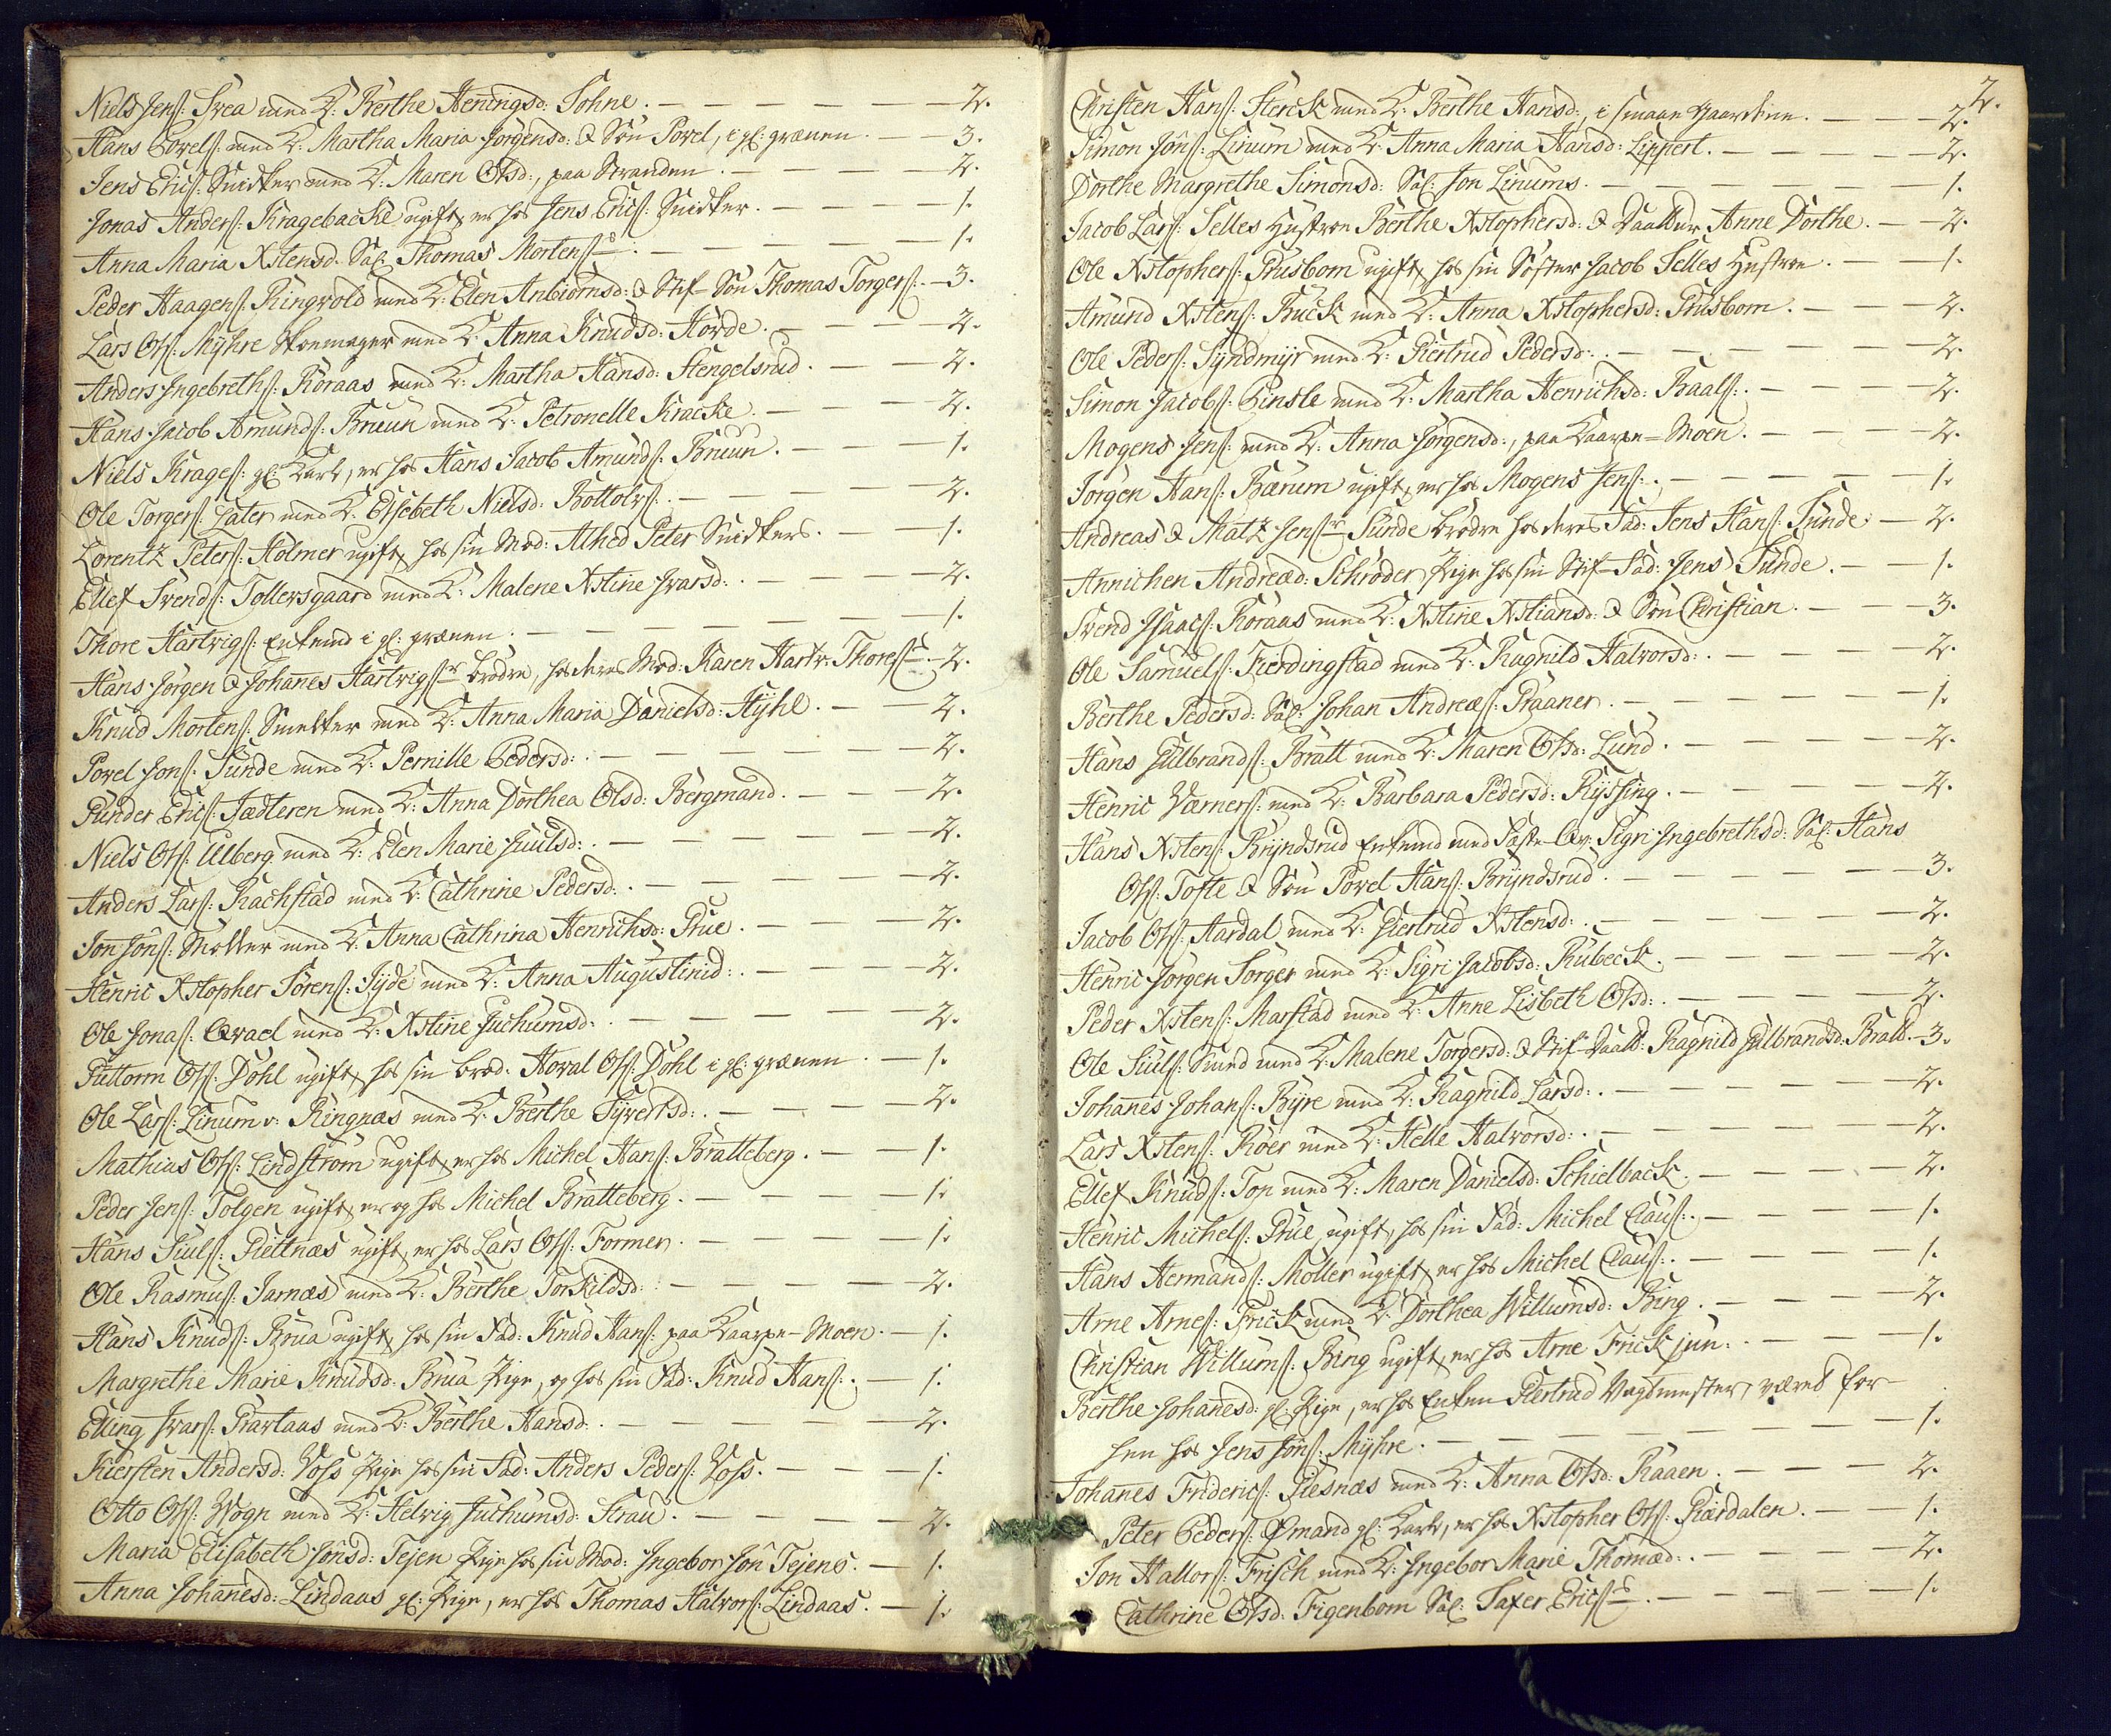 Niels Jenſ: Svea med K: Berthe Heningsd: Sohne. — 2.
Hans Povelſ: med K: Martha Maria Jørgensd: & Søn Povel, i gl: grænen. — 3.
Jens Ericſ: Snidker med K: Maren Olsd:, paa Stranden. — 2.
Jonas Anderſ: Kragebacke ugift, er hos Jens Ericſ: Snidker. — 1.
Anna Maria Xstensd. Sal: Thomas Mortenſs. — 1.
Peder Haagenſ: Ringvold med K: Elen Anbiørnsd: & Stif-Søn Thomas Torgerſ:. — 3.
Lars Olſ: Myhre Skomager med K: Anna Knudsd: Hørde. — 2.
Anders Ingebrethſ: Røraas med K: Martha Hansd: Stengelsrud. — 2.
Hans Jacob Amundſ: Bruun med K: Petronelle Kracke. — 2.
Niels Krageſ: gl: Karl, er hos Hans Jacob Amundſ: Bruun. — 1.
Ole Torgerſ: Sater med K: Elsebeth Nielsd: Bottolvſ:. — 2.
Lorentz Peterſ: Holmer ugift, hos sin Mod: Alhed Peter Snidkers. — 1.
Ellef Svendſ: Tollersgaard med K: Malene Xstine Ivarsd:. — 2.
Thore Hartvigſ: Enkemd i gl: grænen. — 1.
Hans Jørgen & Johanes Hartvigſr brødre, hos deres Mod: Karen Hartv: Thoreſs. — 2.
Knud Mortenſ: Smelter med K: Anna Maria Danielsd: Hyhl. — 2.
Povel Jonſ: Sunde med K: Pernille Pedersd:. — 2.
Gunder Ericſ: Jædteren med K: Anna Dorthea Olsd: Bergmand. — 2.
Niels Olſ: Ulberg med K: Elen Marie Juulsd:. — 2.
Anders Larſ: Rachstad med K: Cathrine Pedersd:. — 2.
Jon Jonſ: Møller med K: Anna Cathrina Henrichsd: Prue. — 2.
Henric Xstopher Sørenſ: Jyde med K: Anna Augustinid:. — 2.
Ole Jonaſ: Qvael med K: Xstine Juchumsd:. — 2.
Guttorm Olſ: Dohl ugift, hos sin brod. Hoval Olſ: Dohl i gl: grænen. — 1.
Ole Larſ: Linum v: Ringnæs med K: Berthe Syvertsd:. — 2.
Mathias Olſ: Lindstrøm ugift, er hos Michel Hanſ: Bratteberg. — 1.
Peder Jenſ: Tolgen ugift, er og hos Michel Bratteberg. — 1.
Hans Siulſ: Gjettnæs ugift, er hos Lars Olſ: Former. — 1.
Ole Rasmuſ: Jarnæs med K: Berthe Torkildsd: — 2.
Hans Knudſ: Brua ugift, hos sin Fad: Knud Hanſ: paa Kaarpe-Moen. — 1.
Margrethe Marie Knudsd: Brua Pige, og hos sin Fad: Knud Hanſ:. — 1.
Elling Ivarſ: Pravtaas med K: Berthe Hansd:. — 2.
Kiersten Andersd: Voſs Pige hos sin Fad: Anders Pederſ: Voſs. — 1.
Otto Olſ: Wogn med K: Helvig Juchumsd: Strau. — 2.
Maria Elisabeth Jonsd: Tejen Pige hos sin Mod: Ingebor Jon Tejens. — 1.
Anna Johanesd: Lindaas gl: Pige, er hos Thomas Halvorſ: Lindaas. — 1.
2.
Christen Hanſ: Sterck med K: Berthe Hansd:, i smaae Gaardene. — 2.
Simon Jonſ: Linum med K: Anna Maria Hansd: Lippert. — 2.
Dorthe Margrethe Simonsd: Sal: Jon Linums. — 1.
Jacob Larſ: Selles Hustroe Berthe Xstophersd: & Daatter Anne Dorthe. — 2.
Ole Xstopherſ: Prusbom ugift, hos sin Søster Jacob Selles Hustroe. — 1.
Amund Xstenſ: Buck med K: Anna Xstophersd: Prusbom. — 2.
Ole Pederſ: Syndmyr med K: Giertrud Pedersd:. — 2.
Simon Jacobſ: Pinsle med K: Martha Henrichsd: Baalſ:. — 2.
Mogens Jenſ: med K: Anna Jørgensd:, paa Kaarpe-Moen. — 2.
Jørgen Hanſ: Bærum ugift, er hos Mogens Jenſ:. — 1.
Andreas & Matz Jenſr Sunde brødre hos deres Fad: Jens Hanſ: Sunde — 2.
Annichen Andread: Schrøder Pige hos sin Stif-Fad: Jens Sunde. — 1.
Svend Isaacſ: Røraas med K: Xstine Xstiansd: & Søn Christian. — 3.
Ole Samuelſ: Fierdingstad med K: Ragnild Halvorsd:. — 2.
Berthe Pedersd: Sal: Johan Andreæſ: Praaner. — 1.
Hans Gulbrandſ: Bratt med K: Maren Olsd: Lund. — 2.
Henric Værnerſ: med K: Barbara Pedersd: Rysſing. — 2.
Hans Xstenſ: Bryndsrud Enkemd med Fæste Qv: Sigri Ingebrethsd: Sal: Hans
Olſ: Tofte & Søn Povel Hanſ: Bryndsrud. — 3.
Jacob Olſ: Aardal med K: Giertrud Xstensd:. — 2.
Henric Jørgen Sørger med K: Sigri Jacobsd: Rubeck. — 2.
Peder Xstenſ: Marstad med K: Anne Lisbeth Olsd:. — 2.
Ole Siulſ: Smed med K: Malene Torgersd: & Stif-Daatt: Ragnild Gulbrandsd: Bratt. — 3.
Johanes Johanſ: Byre med K: Ragnild Larsd:. — 2.
Lars Xstenſ: Roer med K: Helle Halvorsd:. — 2.
Ellef Knudſ: Top med K: Maren Danielsd: Schielback. — 2.
Henric Michelſ: Prue, ugift, hos sin Fad: Michel Clauſ:. — 1.
Hans Hermandſ: Møller ugift, er hos Michel Clauſ:. — 1.
Arne Arneſ: Frick med K: Dorthea Willumsd: Bing. — 2.
Christian Willumſ: Bing ugift, er hos Arne Frick jun:. — 1.
Berthe Johanesd: gl: Pige, er hos Enken Giertrud Vagtmester, været for-
hen hos Jens Jonſ: Myhre. — 1.
Johanes Fridericſ: Glesnæs med K: Anna Olsd: Raaen. — 2.
Peter Pederſ: Ømand gl: Karl, er hos Xstopher Olſ: Kiærdalen. — 1.
Jon Hallorſ: Frisch med K: Ingebor Marie Thomæd:. — 2.
Cathrine Olsd: Figenbom Sal: Saxer Ericſs. — 1.